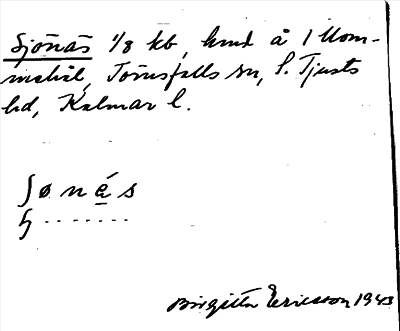 Sjönäs 1/8 kb, hmd å 1 Mom-
mehål, Törnsfalls sn, S. Tjusts
hd, Kalmar l.
ʃ ø n é s
ɧ .......
Birgitta Ericsson 1943